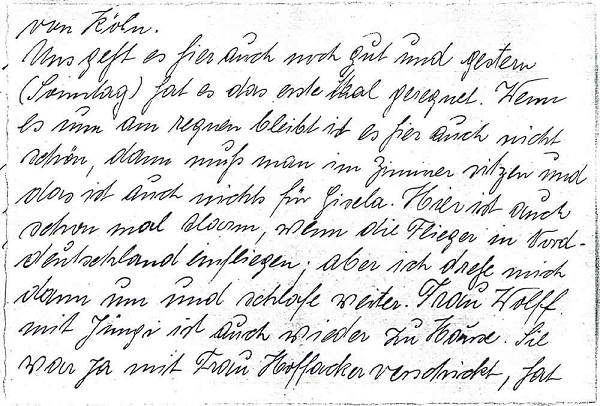 von Köln.
Uns geht es hier auch noch gut und gestern
(Sonntag) hat es das erste Mal geregnet. Wenn
es nun am regnen bleibt ist es hier auch nicht
schön, dann muß man im Zimmer sitzen und
das ist auch nichts für Gisela. Hier ist auch
schon mal Alarm, wenn die Flieger in Nord-
deutschland einfliegen; aber ich drehe mich
dann um und schlafe weiter. Frau Wolff
mit Jüngi ist auch wieder zu Hause. Sie
war ja mit Frau Hoffacker verschickt, hat